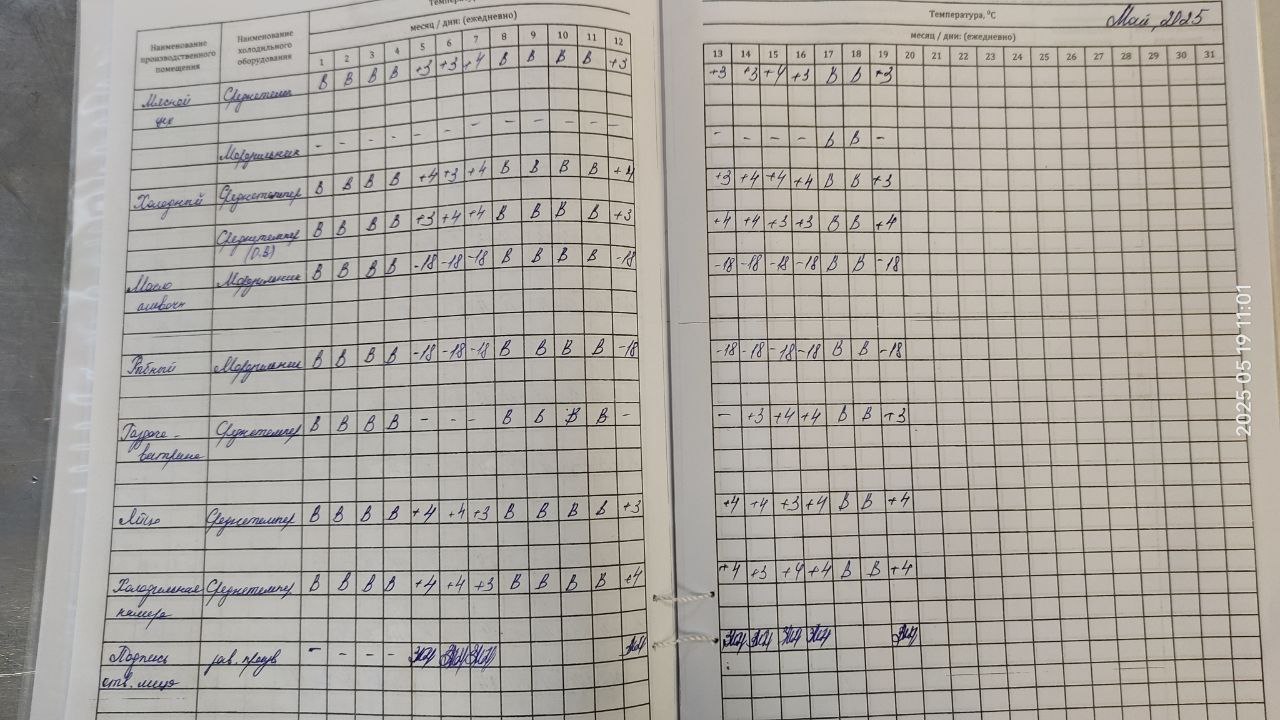 Температу
месяц / дни: (ежедневно)
Наименование производственного помещения
Наименование холодильного оборудования
1 2 3 4 5 6 7 8 9 10 11 12
Мясной цех Среднетемп В В В В +3 +3 +4 В В В В +3
Морозильник - - - - - - - - - - - -
Холодный Среднетемпер В В В В +4 +3 +4 В В В В +4
Среднетемпер (О.В) В В В В +3 +4 +4 В В В В +3
Масло сливочн Морозильник В В В В -18 -18 -18 В В В В -18
Рыбный Морозильник В В В В -18 -18 -18 В В В В -18
Среднетемпер В В В В - - - В В В В -
витрина
Яйцо Среднетемпер В В В В +4 +4 +3 В В В В +3
Холодильная камера Среднетемпер В В В В +4 +4 +3 В В В В +4
Подпись отв. лица зав. произв - - - -
Температура, °C
Май, 2025
месяц / дни: (ежедневно)
13 14 15 16 17 18 19 20 21 22 23 24 25 26 27 28 29 30 31
+3 +3 +4 +3 В В +3
- - - - В В -
+3 +4 +4 +4 В В +3
+4 +4 +3 +3 В В +4
-18 -18 -18 -18 В В -18
-18 -18 -18 -18 В В -18
- +3 +4 +4 В В +3
+4 +4 +3 +4 В В +4
+4 +3 +4 +4 В В +4
2025-05-19 11:01